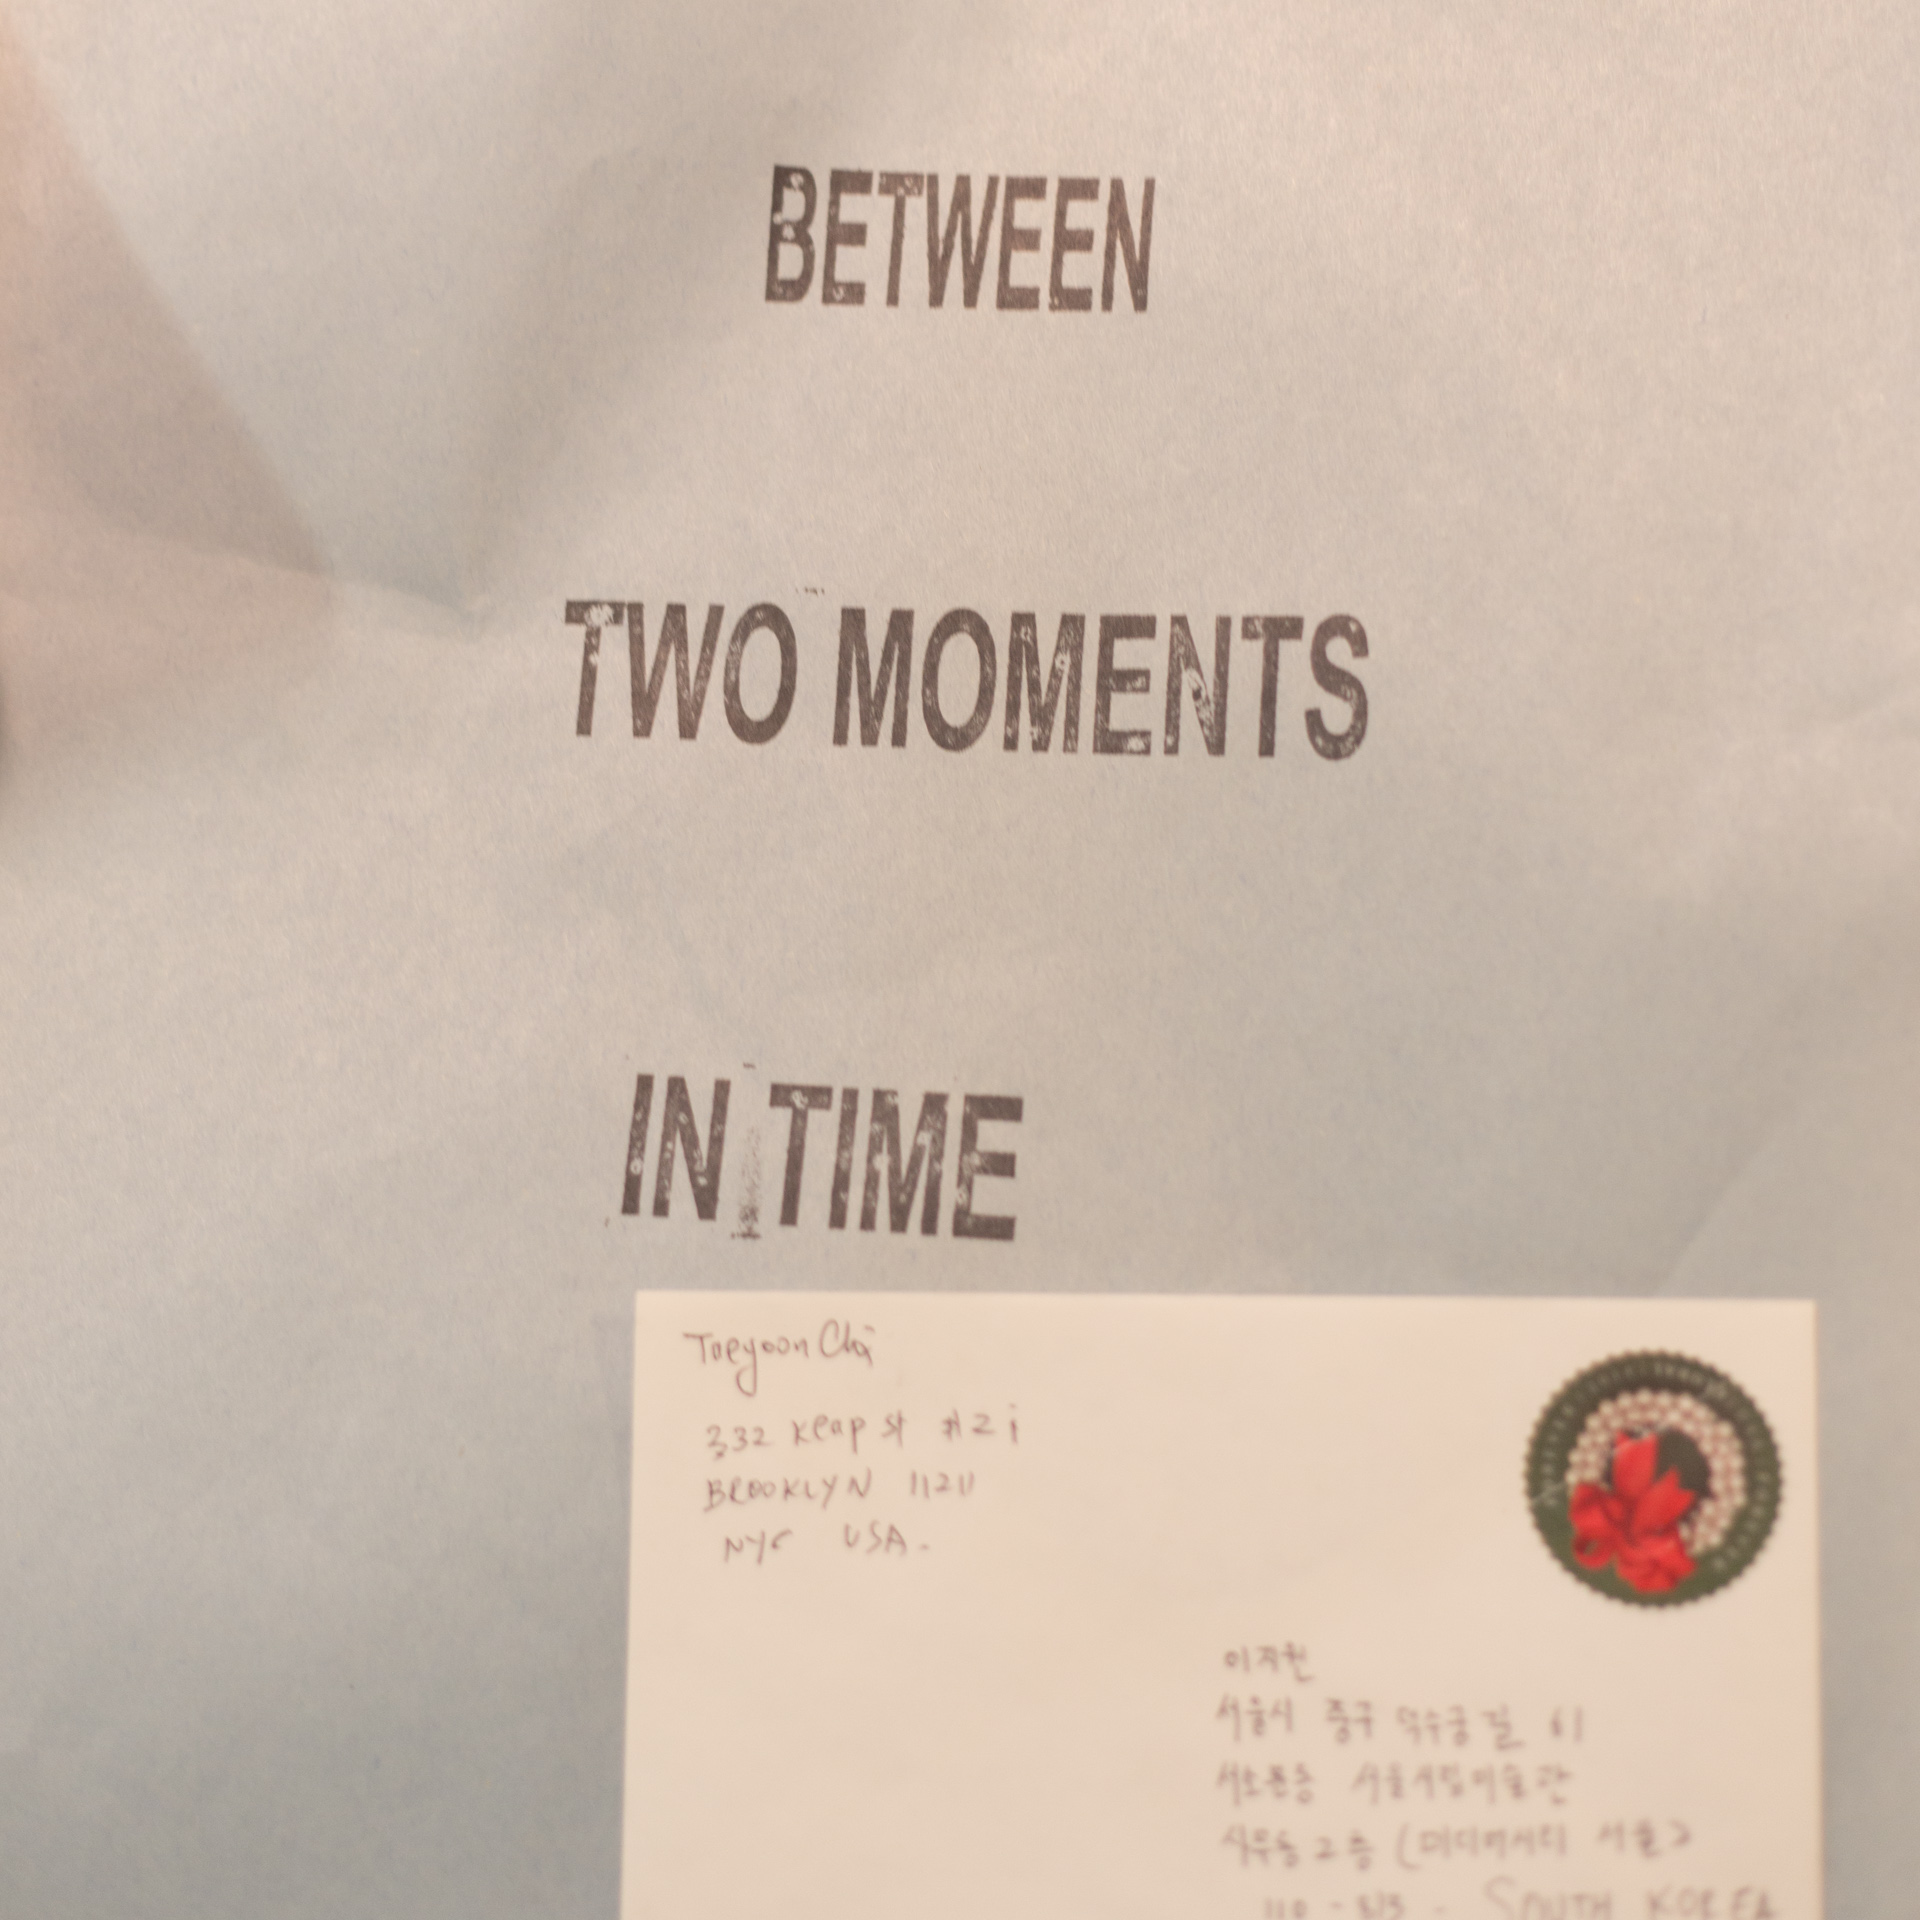 BETWEEN
TWO MOMENTS
IN TIME
Taeyoon Choi
332 Keap st #2i
BROOKLYN 11211
NYC USA.
이지원
서울시 중구 덕수궁길 61
서소문동 서울시립미술관
사무동 2층 (미디어시티 서울)
SOUTH KOREA